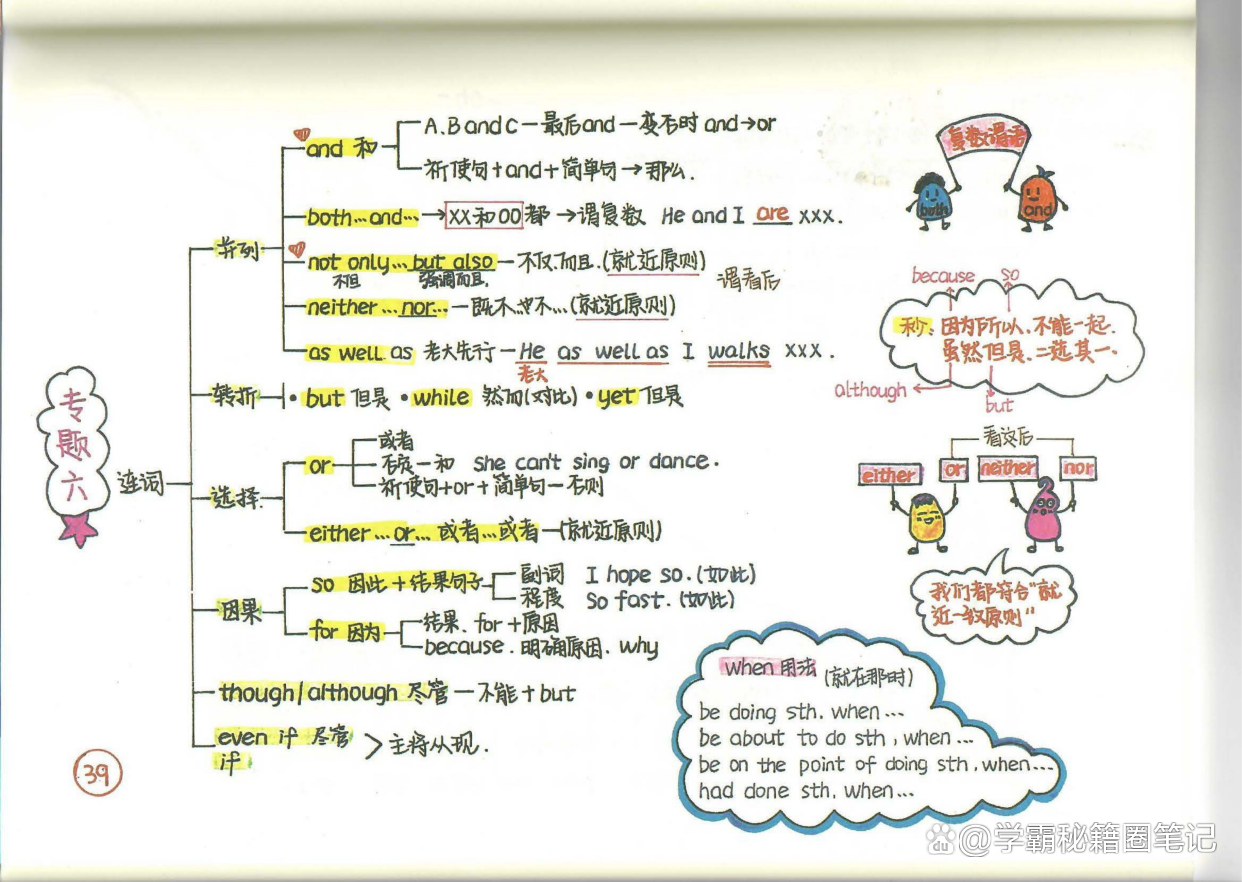 专题六
连词
并列
and 和
A、B and C — 最后and — 变否时 and→or
祈使句+and+简单句→那么.
both…and… → XX和OO都 → 谓复数 He and I are xxx.
not only…but also — 不仅.而且.(就近原则)
不但 强调而且.
谓看后
neither…nor… — 既不…也不…(就近原则)
as well as 老大先行 — He as well as I walks xxx.
老大
转折
·but 但是 ·while 然而(对比) ·yet 但是
选择
or
或者
否定 — 和 She can't sing or dance.
祈使句+or+简单句 — 否则
either…or… 或者…或者 — (就近原则)
因果
so 因此+结果句子
副词 I hope so.(如此)
程度 So fast.(如此)
for 因为
结果、for+原因
because.明确原因.why
though/although 尽管 — 不能+but
even if 尽管
if
> 主将从现.
39
复数谓语
both
and
because so
秒: 因为所以、不能一起.
虽然但是、二选其一、
although
but
看这后
either or neither nor
我们都符合"就
近一致原则"
when 用法 (就在那时)
be doing sth. when…
be about to do sth, when…
be on the point of doing sth, when…
had done sth. when…
@学霸秘籍圈笔记